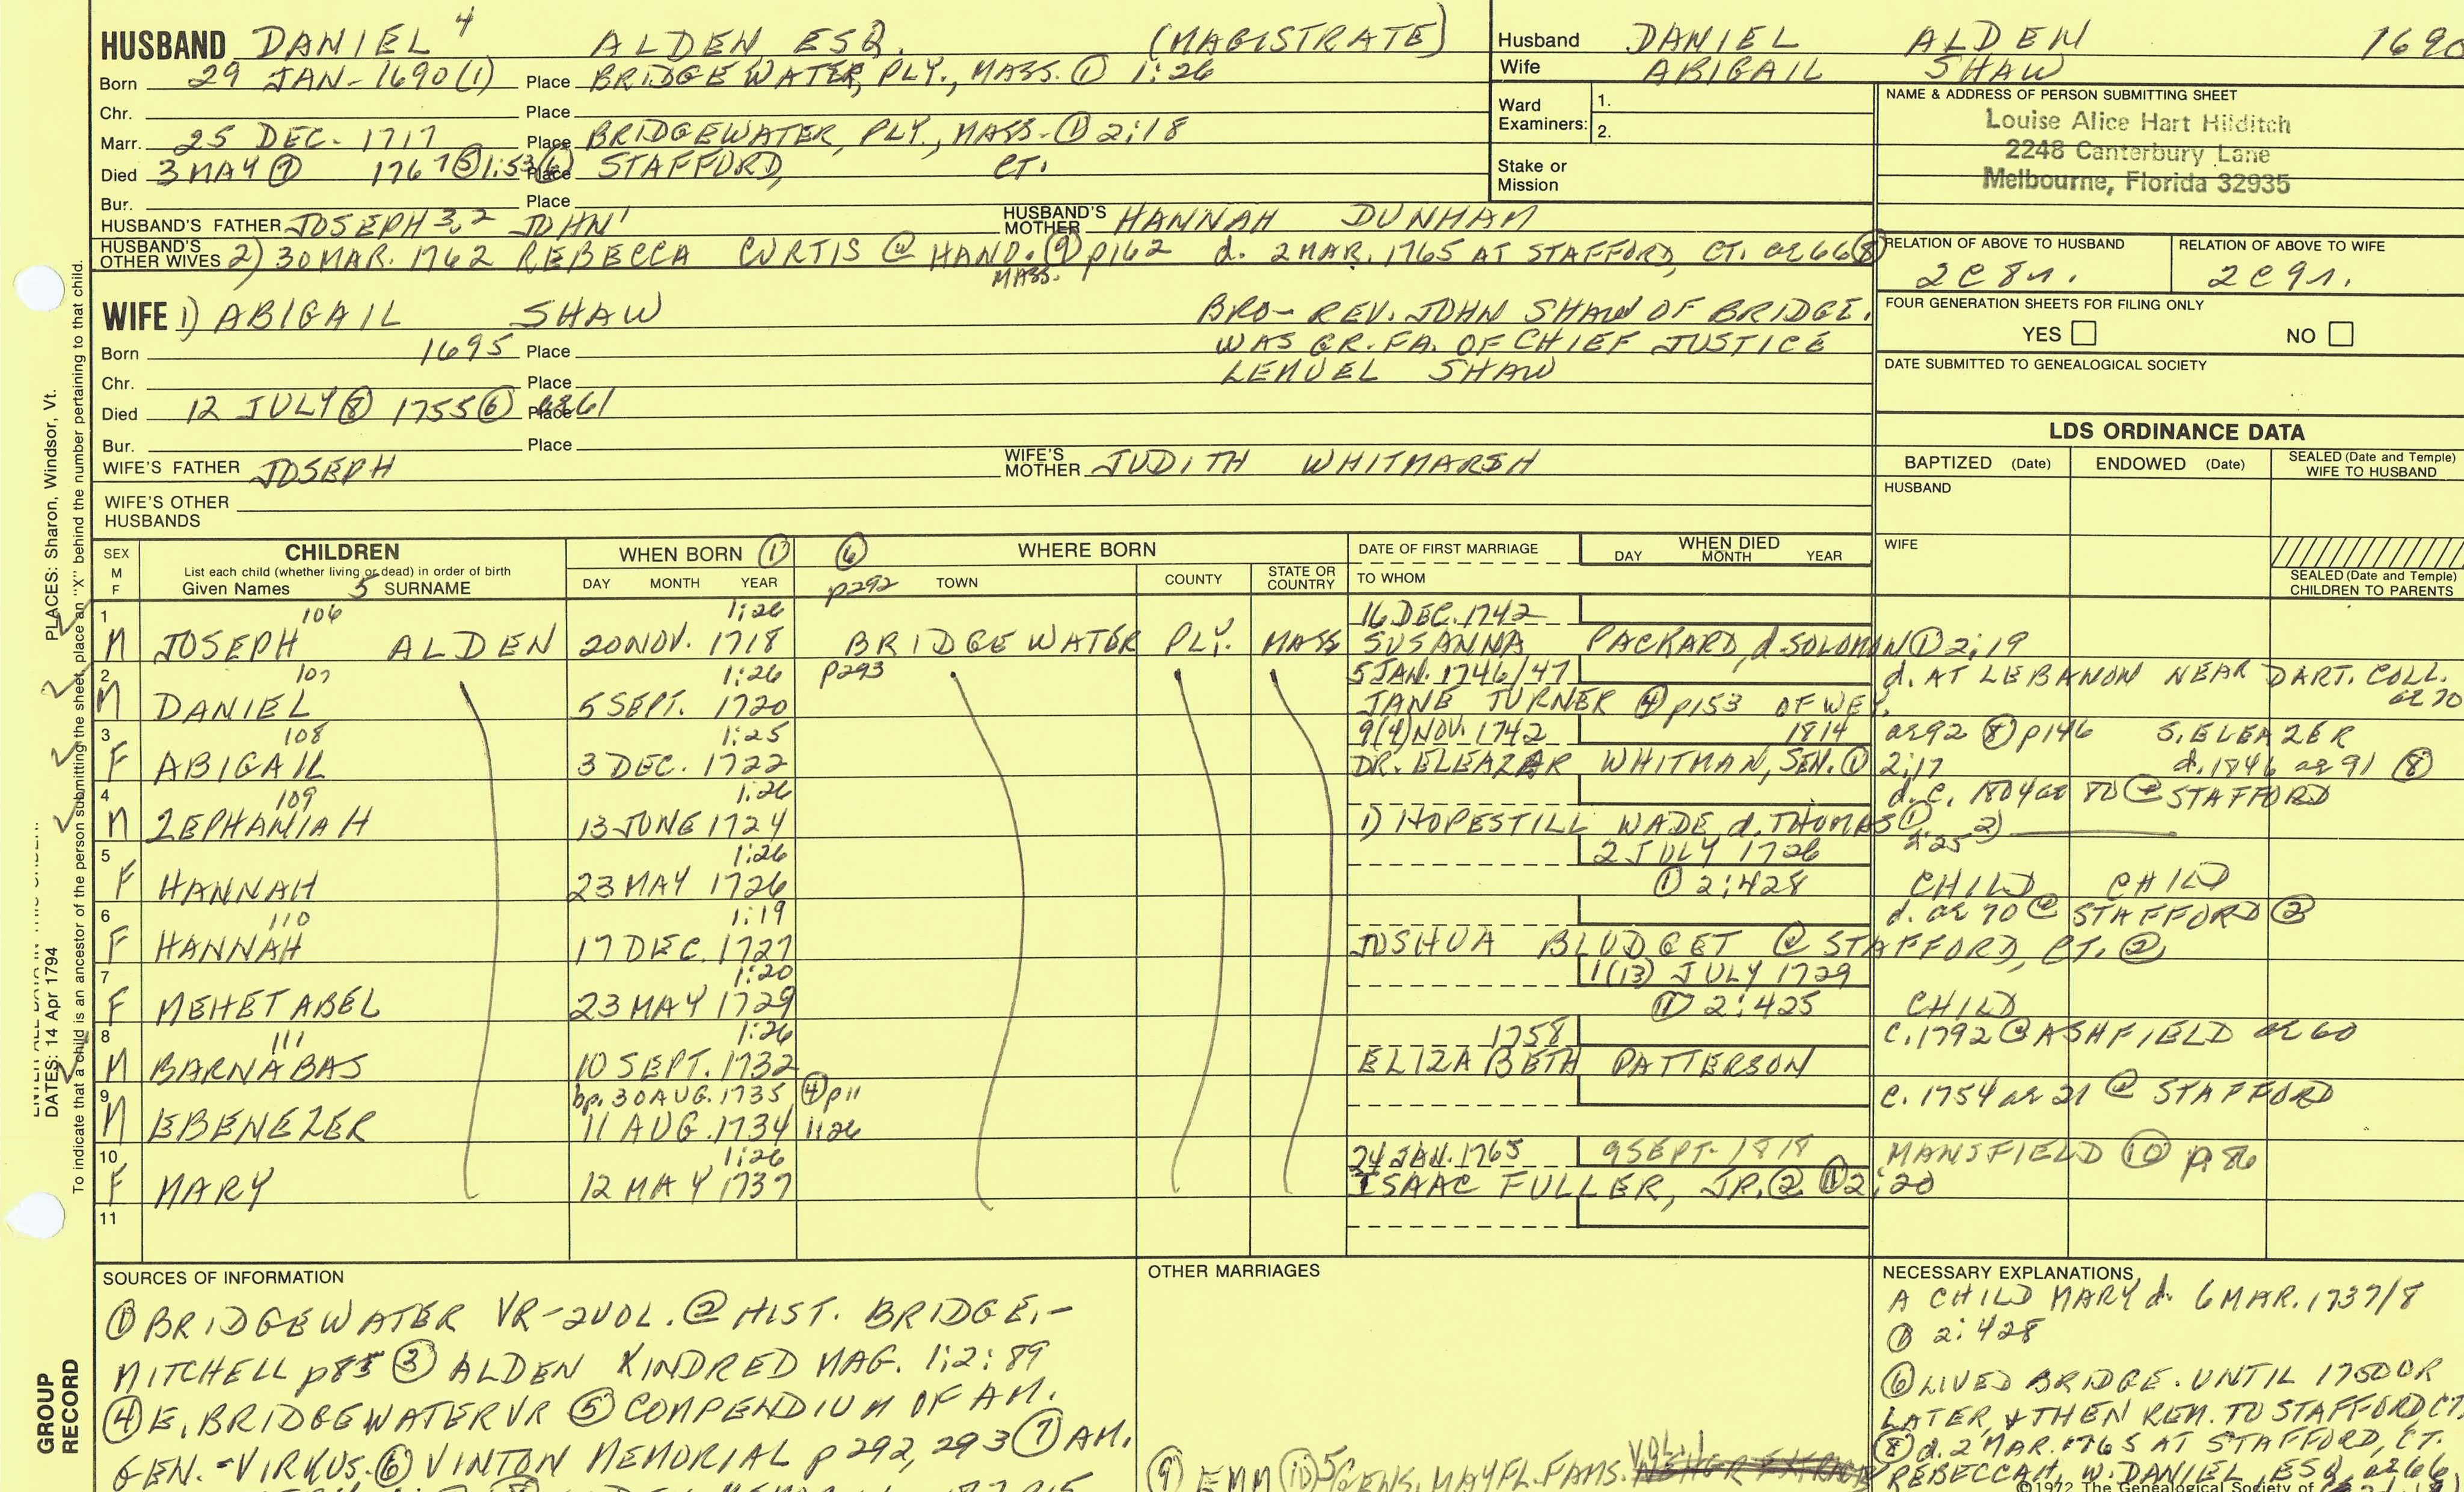 HUSBAND DANIEL 4 ALDEN ESQ. (MAGISTRATE)
Born 29 JAN- 1690(1) Place BRIDGEWATER, PLY., MASS. ① 1:26
Chr. Place
Marr. 25 DEC. 1717 Place BRIDGEWATER, PLY., MASS- ① 2:18
Died 3 MAY ⑦ 1767 ⑤ 1:53 ⑥ Place STAFFORD, CT.
Bur. Place
HUSBAND'S FATHER JOSEPH 3,2 JOHN 1 HUSBAND'S MOTHER HANNAH DUNHAM
HUSBAND'S OTHER WIVES 2) 30 MAR. 1762 REBECCA CURTIS @ HANO. ⑨ p162 d. 2 MAR. 1765 AT STAFFORD, CT. ae 66 ⑧
MASS.
WIFE 1) ABIGAIL SHAW
Born 1695 Place
Chr. Place
Died 12 JULY ⑧ 1755 ⑥ Place ae 61
Bur. Place
BRO- REV. JOHN SHAW OF BRIDGE.
WAS GR. FA. OF CHIEF JUSTICE
LEMUEL SHAW
WIFE'S FATHER JOSEPH WIFE'S MOTHER JUDITH WHITMARSH
WIFE'S OTHER HUSBANDS
Husband DANIEL ALDEN 1690
Wife ABIGAIL SHAW
Ward Examiners: 1.
2.
Stake or Mission
NAME & ADDRESS OF PERSON SUBMITTING SHEET
Louise Alice Hart Hilditch
2248 Canterbury Lane
Melbourne, Florida 32935
RELATION OF ABOVE TO HUSBAND RELATION OF ABOVE TO WIFE
2C8r. 2C9r.
FOUR GENERATION SHEETS FOR FILING ONLY
YES NO
DATE SUBMITTED TO GENEALOGICAL SOCIETY
LDS ORDINANCE DATA
BAPTIZED (Date) ENDOWED (Date) SEALED (Date and Temple) WIFE TO HUSBAND
HUSBAND
WIFE
SEALED (Date and Temple) CHILDREN TO PARENTS
SEX M F
CHILDREN
List each child (whether living or dead) in order of birth
Given Names 5 SURNAME
WHEN BORN ①
DAY MONTH YEAR
⑥ WHERE BORN
p292 TOWN COUNTY STATE OR COUNTRY
DATE OF FIRST MARRIAGE
TO WHOM
WHEN DIED
DAY MONTH YEAR
1 106 1:26 16 DEC. 1742
M JOSEPH ALDEN 20 NOV. 1718 BRIDGEWATER PLY. MASS SUSANNA PACKARD, d. SOLOMON ① 2:19
2 107 1:26 p293 5 JAN. 1746/47 d. AT LEBANON NEAR DART. COLL. ae 70
M DANIEL 5 SEPT. 1720 JANE TURNER ④ p153 OF WEY.
3 108 1:25 9(4) NOV. 1742 1814 ae 92 ⑧ p146 S. ELEAZER
F ABIGAIL 3 DEC. 1722 DR. ELEAZAR WHITMAN, SEN. ① 2:17 d. 1846 ae 91 ⑧
4 109 1:26 d. c. 1804 ae 80 @ STAFFORD
M ZEPHANIAH 13 JUNE 1724 1) HOPESTILL WADE, d. THOMAS ① 2:25 2)
5 1:26 2 JULY 1726
F HANNAH 23 MAY 1726 ① 2:428 CHILD CHILD
6 110 1:19 d. ae 70 @ STAFFORD ②
F HANNAH 17 DEC. 1727 JOSHUA BLODGET @ STAFFORD, CT. ②
7 1:20 1(13) JULY 1729
F MEHETABEL 23 MAY 1729 ① 2:425 CHILD
8 111 1:26 1758 c. 1792 @ ASHFIELD ae 60
M BARNABAS 10 SEPT. 1732 ELIZABETH PATTERSON
9 bp. 30 AUG. 1735 ④ p11 c. 1754 ae 21 @ STAFFORD
M EBENEZER 11 AUG. 1734 1:26
10 1:26 24 JAN. 1765 9 SEPT- 1818 MANSFIELD ⑩ p. 86
F MARY 12 MAY 1737 ISAAC FULLER, JR. ② ① 2:20
11
SOURCES OF INFORMATION
① BRIDGEWATER VR-2VOL. ② HIST. BRIDGE.-
MITCHELL p85 ③ ALDEN KINDRED MAG. 1:2:89
④ E. BRIDGEWATER VR ⑤ COMPENDIUM OF AM.
GEN.-VIRKUS. ⑥ VINTON MEMORIAL p 292, 293 ⑦ AM.
OTHER MARRIAGES
VOL. 1
⑨ EMM ⑩ 5 GENS. MAYFL. FAMS.
NECESSARY EXPLANATIONS
A CHILD MARY d. 6 MAR. 1737/8
① 2:428
⑥ LIVED BRIDGE. UNTIL 1750 OR
LATER, & THEN REM. TO STAFFORD CT.
⑧ d. 2 MAR. 1765 AT STAFFORD, CT.
REBECCAH, W. DANIEL, ESQ. ae 66
©1972 The Genealogical Society of
PLACES: Sharon, Windsor, Vt.
DATES: 14 Apr 1794
To indicate that a child is an ancestor of the person submitting the sheet, place an "X" behind the number pertaining to that child.
GROUP RECORD